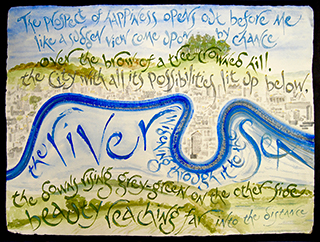 The prospect of happiness opens out before me
like a sudden view come upon by chance
over the brow of a tree crowned hill.
the City with all its possibilities lit up below.
the river winding through it to the sea
the downs rising grey-green on the other side
beauty reaching far into the distance